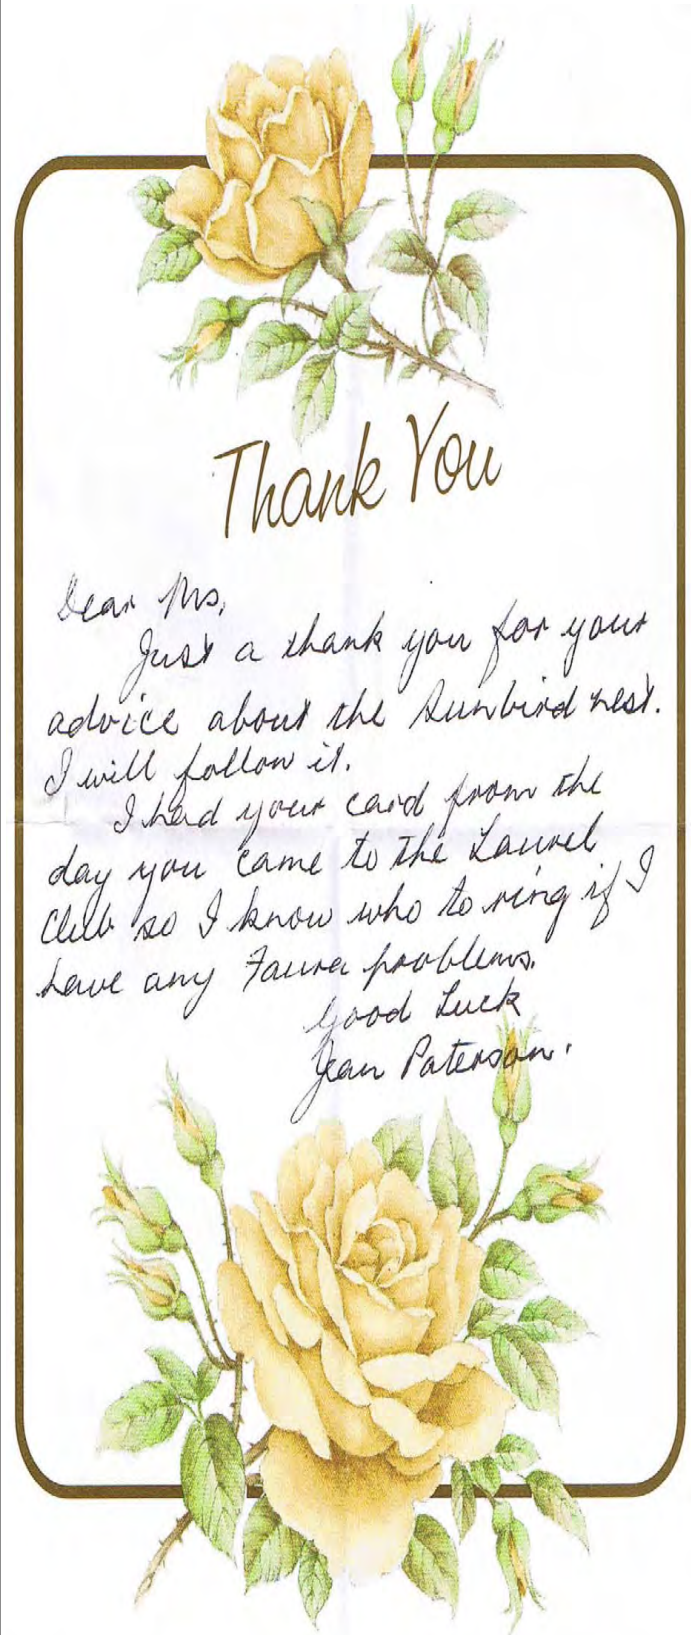 Thank You
Dear Mrs,
Just a thank you for your
advice about the Sunbird nest.
I will follow it.
I had your card from the
day you came to the Laurel
Club so I know who to ring if I
have any Fauna problems.
Good Luck
Jean Paterson.